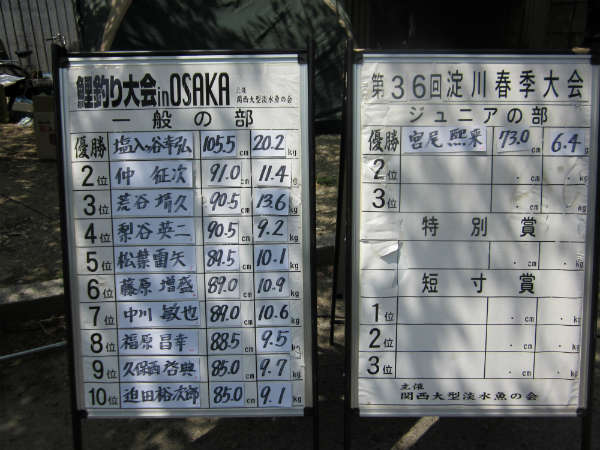 鯉釣り大会inOSAKA 主催 関西大型淡水魚の会
一般の部
優勝 塩入谷幸弘 105.5cm 20.2kg
2位 仲 征次 91.0cm 11.4kg
3位 荒谷 靖久 90.5cm 13.6kg
4位 梨谷 英二 90.5cm 9.2kg
5位 松葉 雷矢 89.5cm 10.1kg
6位 藤原 増盛 89.0cm 10.9kg
7位 中川 敏也 89.0cm 10.6kg
8位 福原 昌幸 88.5cm 9.5kg
9位 久保田 啓典 85.0cm 9.7kg
10位 迫田裕次郎 85.0cm 9.1kg
第36回淀川春季大会
ジュニアの部
優勝 宮尾 熙来 73.0cm 6.4kg
2位 .cm .kg
3位 .cm .kg
特別賞
.cm .kg
短寸賞
1位 .cm .kg
2位 .cm .kg
3位 .cm .kg
主催
関西大型淡水魚の会